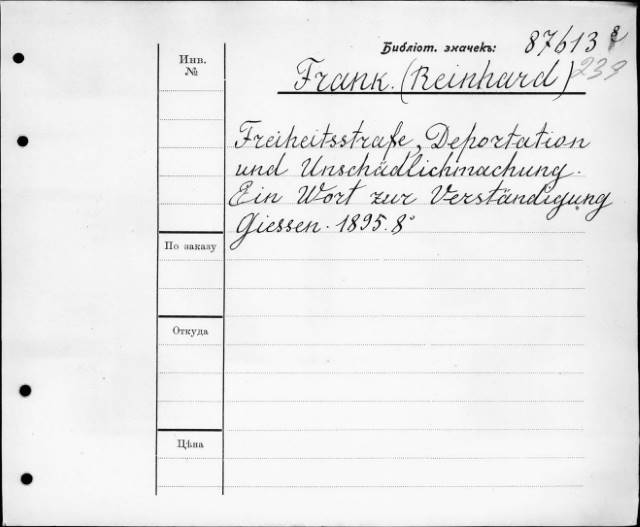 Инв.
№
Библіот. значекъ: 87613
239
Frank. (Reinhard)
Freiheitsstrafe, Deportation
und Unschädlichmachung.
Ein Wort zur Verständigung
Giessen. 1895. 8°
По заказу
Откуда
Цѣна